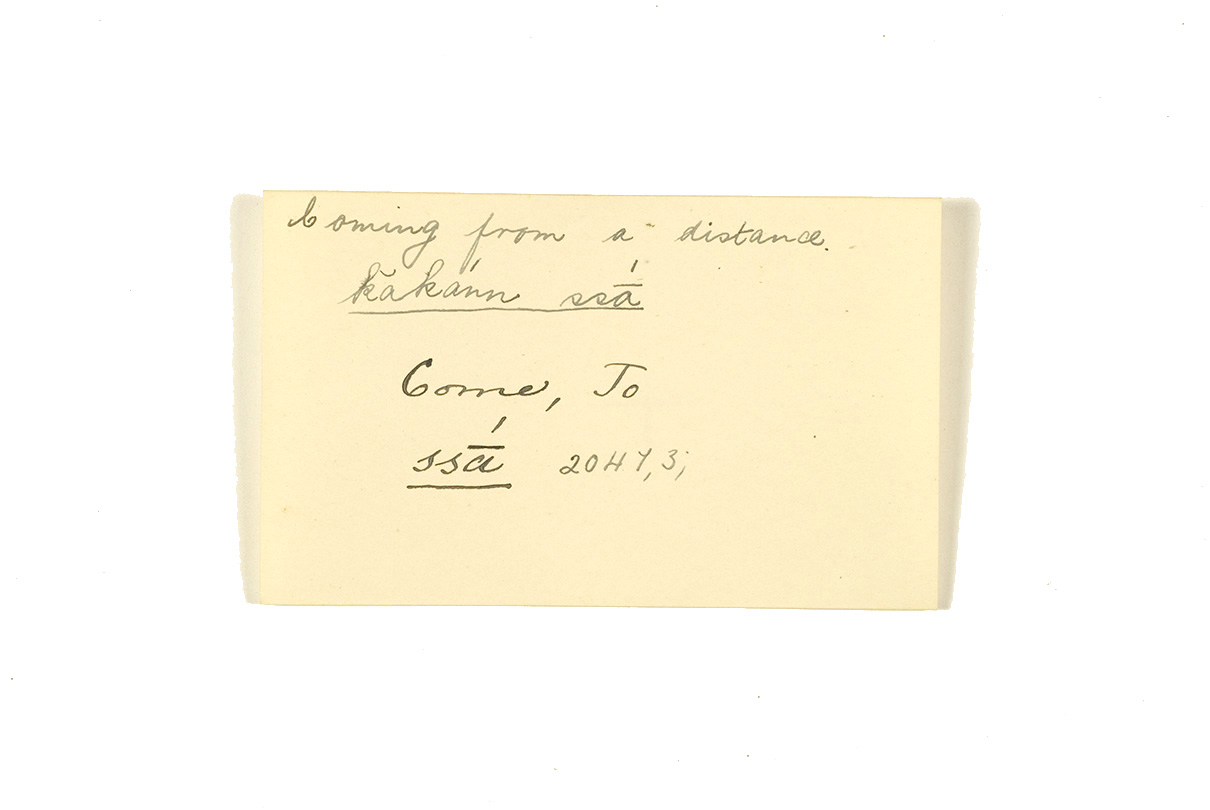 Coming from a distance.
k̆ăkánn ssā́
Come, To
ssā́ 2047,3;